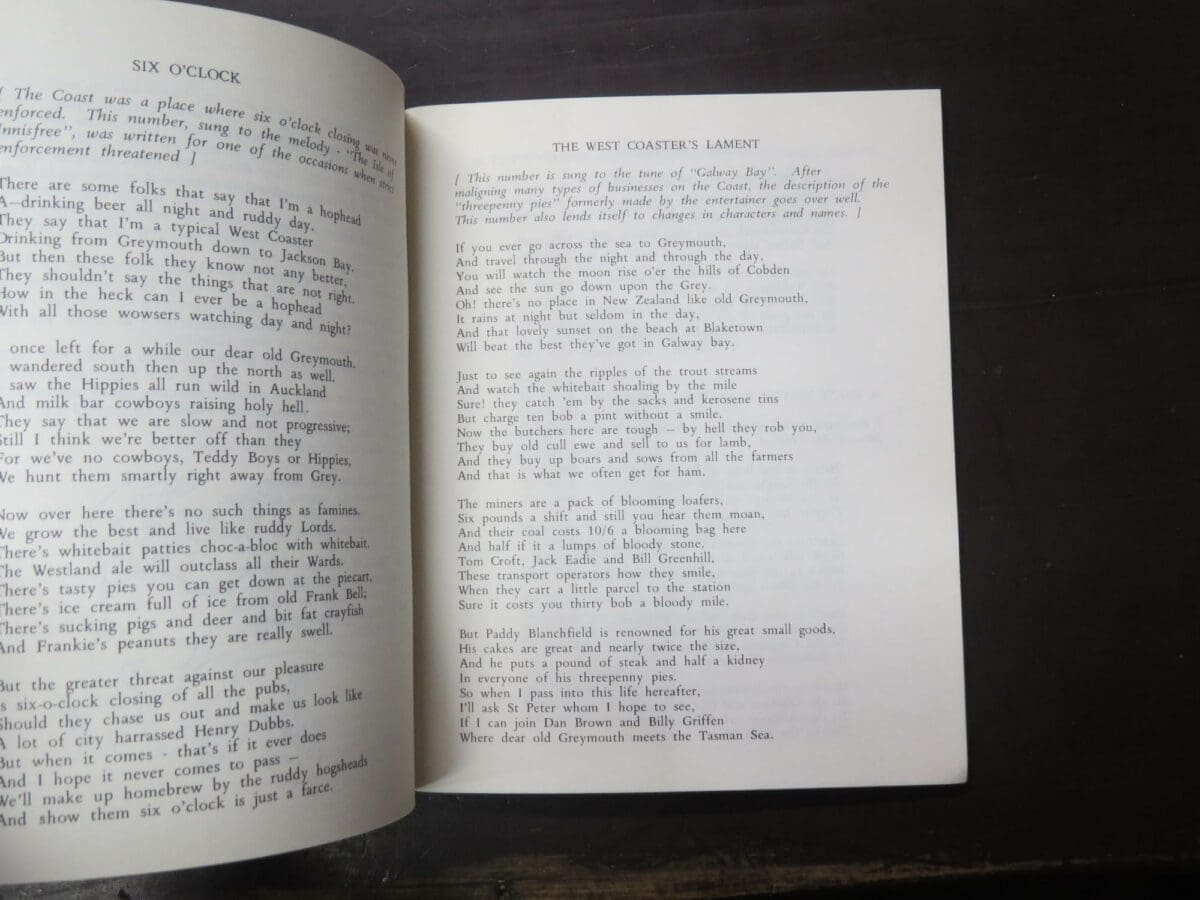 SIX O'CLOCK
[ The Coast was a place where six o'clock closing was never
enforced. This number, sung to the melody - "The Isle of
Innisfree", was written for one of the occasions when strict
enforcement threatened ]
There are some folks that say that I'm a hophead
A—drinking beer all night and ruddy day.
They say that I'm a typical West Coaster
Drinking from Greymouth down to Jackson Bay.
But then these folk they know not any better,
They shouldn't say the things that are not right.
How in the heck can I ever be a hophead
With all those wowsers watching day and night?
once left for a while our dear old Greymouth.
wandered south then up the north as well.
saw the Hippies all run wild in Auckland
And milk bar cowboys raising holy hell.
They say that we are slow and not progressive;
Still I think we're better off than they
For we've no cowboys, Teddy Boys or Hippies,
We hunt them smartly right away from Grey.
Now over here there's no such things as famines.
We grow the best and live like ruddy Lords.
There's whitebait patties choc-a-bloc with whitebait.
The Westland ale will outclass all their Wards.
There's tasty pies you can get down at the piecart,
There's ice cream full of ice from old Frank Bell;
There's sucking pigs and deer and bit fat crayfish
And Frankie's peanuts they are really swell.
But the greater threat against our pleasure
Is six-o-clock closing of all the pubs,
Should they chase us out and make us look like
A lot of city harrassed Henry Dubbs.
But when it comes - that's if it ever does
And I hope it never comes to pass —
We'll make up homebrew by the ruddy hogsheads
And show them six o'clock is just a farce.
THE WEST COASTER'S LAMENT
[ This number is sung to the tune of "Galway Bay". After
maligning many types of businesses on the Coast, the description of the
"threepenny pies" formerly made by the entertainer goes over well.
This number also lends itself to changes in characters and names. ]
If you ever go across the sea to Greymouth,
And travel through the night and through the day,
You will watch the moon rise o'er the hills of Cobden
And see the sun go down upon the Grey.
Oh! there's no place in New Zealand like old Greymouth,
It rains at night but seldom in the day,
And that lovely sunset on the beach at Blaketown
Will beat the best they've got in Galway bay.
Just to see again the ripples of the trout streams
And watch the whitebait shoaling by the mile
Sure! they catch 'em by the sacks and kerosene tins
But charge ten bob a pint without a smile.
Now the butchers here are tough — by hell they rob you,
They buy old cull ewe and sell to us for lamb,
And they buy up boars and sows from all the farmers
And that is what we often get for ham.
The miners are a pack of blooming loafers,
Six pounds a shift and still you hear them moan,
And their coal costs 10/6 a blooming bag here
And half if it a lumps of bloody stone.
Tom Croft, Jack Eadie and Bill Greenhill,
These transport operators how they smile,
When they cart a little parcel to the station
Sure it costs you thirty bob a bloody mile.
But Paddy Blanchfield is renowned for his great small goods,
His cakes are great and nearly twice the size,
And he puts a pound of steak and half a kidney
In everyone of his threepenny pies.
So when I pass into this life hereafter,
I'll ask St Peter whom I hope to see,
If I can join Dan Brown and Billy Griffen
Where dear old Greymouth meets the Tasman Sea.